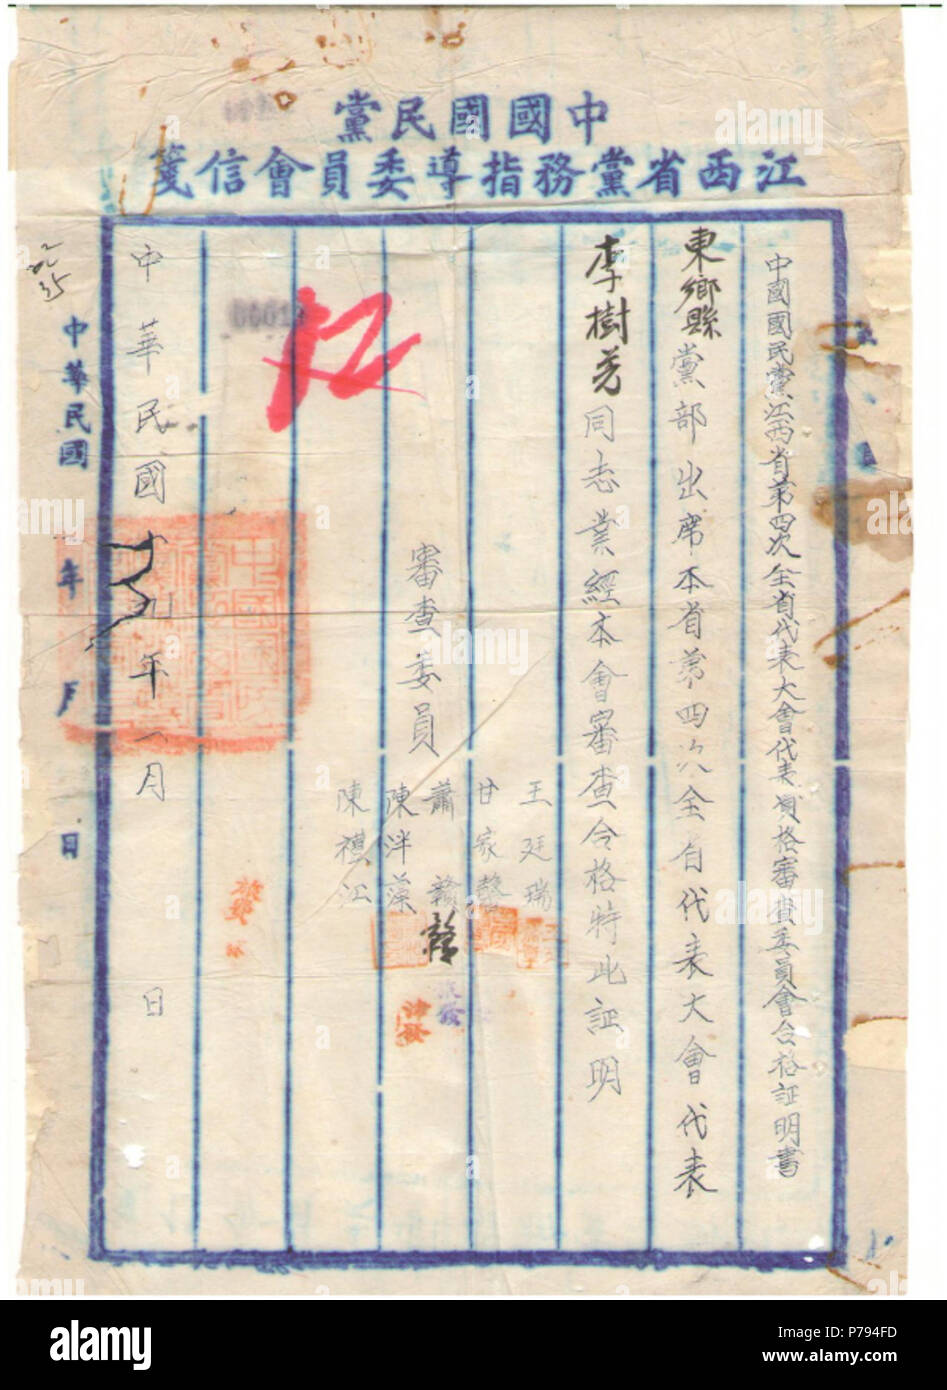 中國國民黨
江西省黨務指導委員會信箋
中國國民黨江西省第四次全省代表大會代表資格審查委員會合格証明書
東鄉縣黨部出席本省第四次全省代表大會代表
李樹
同志業經本會審查合格特此証明
審查委員
王廷瑞
甘家馨
蕭贛
陳泮藻
陳禊江
中華民國
年一月
日
中華民國
年
月
日
12
alamy
Image ID: P794FD
www.alamy.com